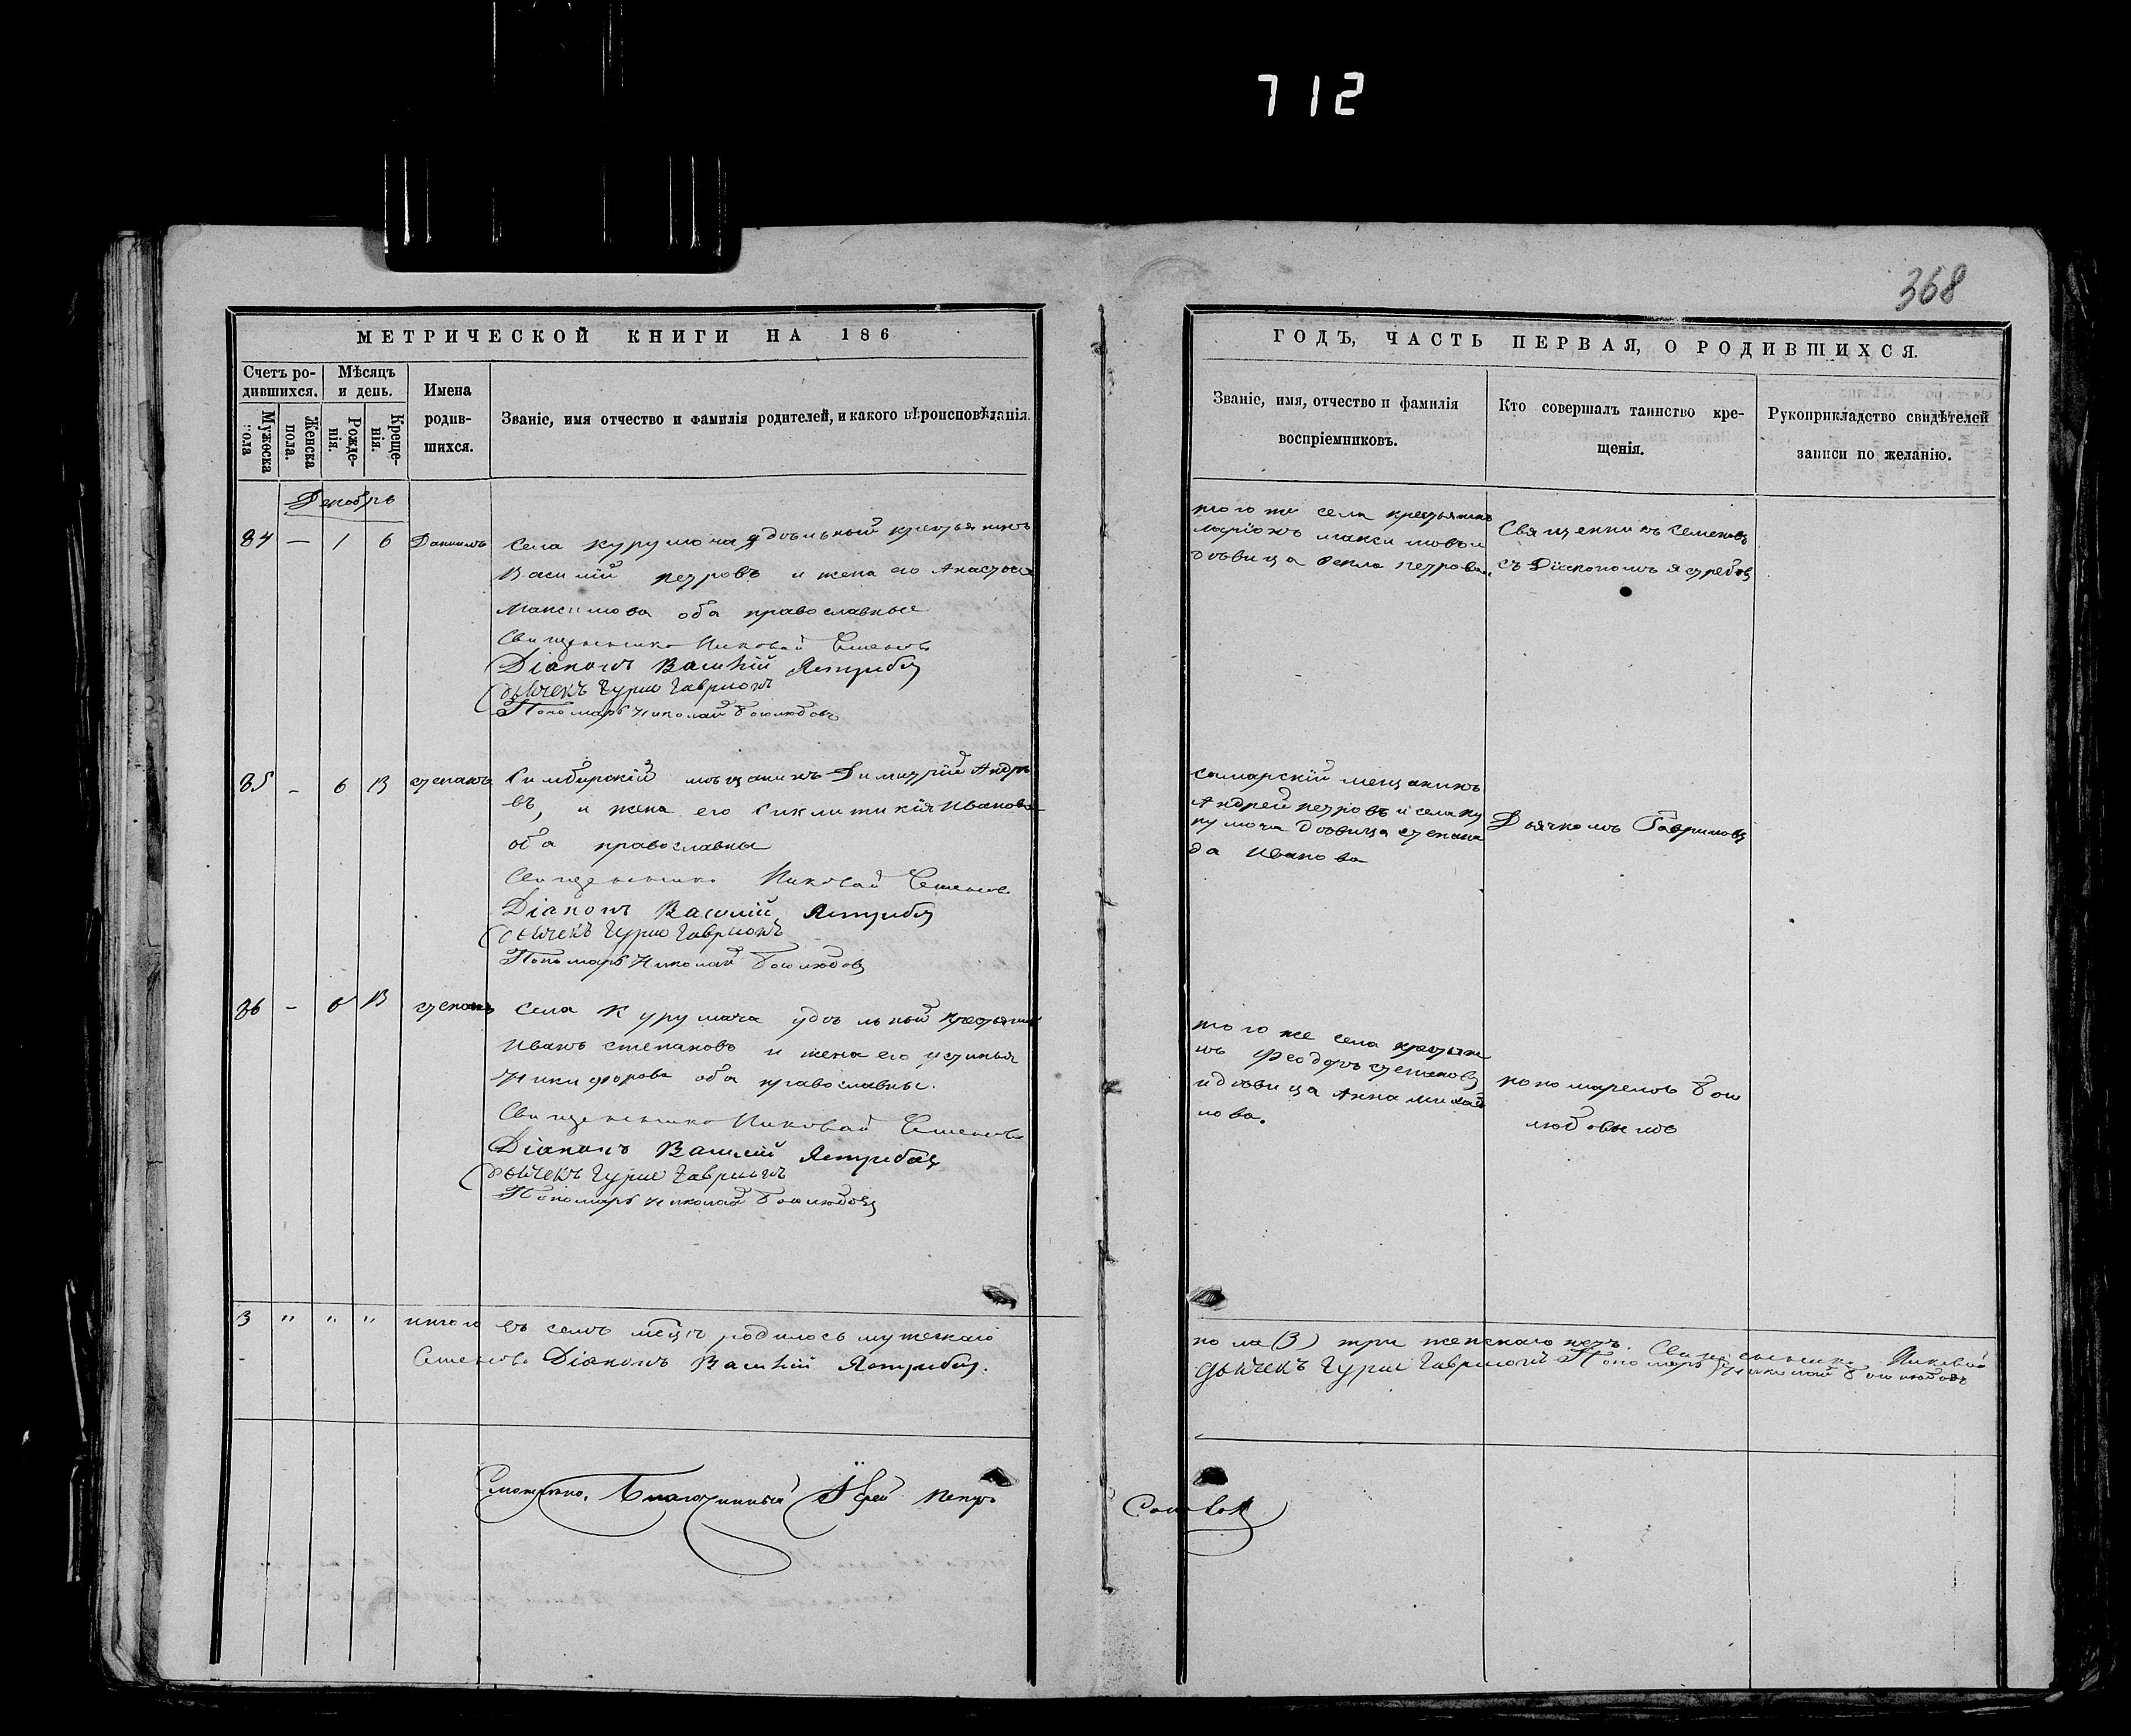 712
368
МЕТРИЧЕСКОЙ КНИГИ НА 186
Счетъ ро-
дившихся.
Мѣсяцъ
и день.
Мужеска
пола
Женска
пола.
Рожде-
нія.
Креще-
нія.
Имена
родив-
шихся.
Званіе, имя отчество и фамилія родителей, и какого вѣроисповѣданія.
Декабрь
84 — 1 6 Даніилъ
села Курумоча удѣльный крестьянинъ
Василій Петровъ и жена его Анастасія
Максимова оба православные
Священникъ Николай Семеновъ
Діаконъ Василій Ястребовъ
Дьячекъ Гурій Гавриловъ
Пономарь Николай Боголюбовъ
85 - 6 13 Степанъ
Симбирскій мѣщанинъ Димитрій Андре
въ, и жена его Сиклитикія Иванова
оба православны
Священникъ Николай Семеновъ
Діаконъ Василій Ястребовъ
Дьячекъ Гурій Гавриловъ
Пономарь Николай Боголюбовъ
86 - 6 13 Степанъ
села Курумоча удѣльный крестьянинъ
Иванъ Степановъ и жена его Устинья
Никифорова оба православны.
Священникъ Николай Семеновъ
Діаконъ Василій Ястребовъ
Дьячекъ Гурій Гавриловъ
Пономарь Николай Боголюбовъ
3 " " " итого въ семъ мѣсяцѣ родилось мужескаго
Семеновъ Діаконъ Василій Ястребовъ.
Благочинный Іерей Петръ
ГОДЪ, ЧАСТЬ ПЕРВАЯ, О РОДИВШИХСЯ.
Званіе, имя, отчество и фамилія
воспріемниковъ.
Кто совершалъ таинство кре-
щенія.
Рукоприкладство свидѣтелей
записи по желанію.
того же села крестьянинъ
Ларіонъ Максимовъ и
дѣвица Ѳекла Петрова.
Священникъ Семеновъ
съ Діакономъ Ястребов
самарскій мещанинъ
Андрей Петровъ и села Ку
румоча дѣвица Степани
да Иванова
Дьячкомъ Гавриловы
того же села крестьяни
нъ Феодоръ Степановъ
и дѣвица Анна Михай
лова.
пономаремъ Бого
любовымъ
пола (3) три женскаго нетъ. Священникъ Николай
Дьячекъ Гурій Гавриловъ Пономарь Николай Боголюбовъ